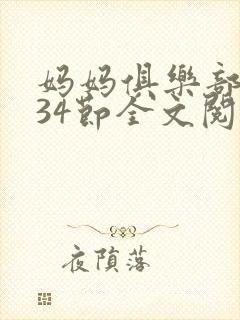 妈妈俱樂部
34節全文閱
夜隕落